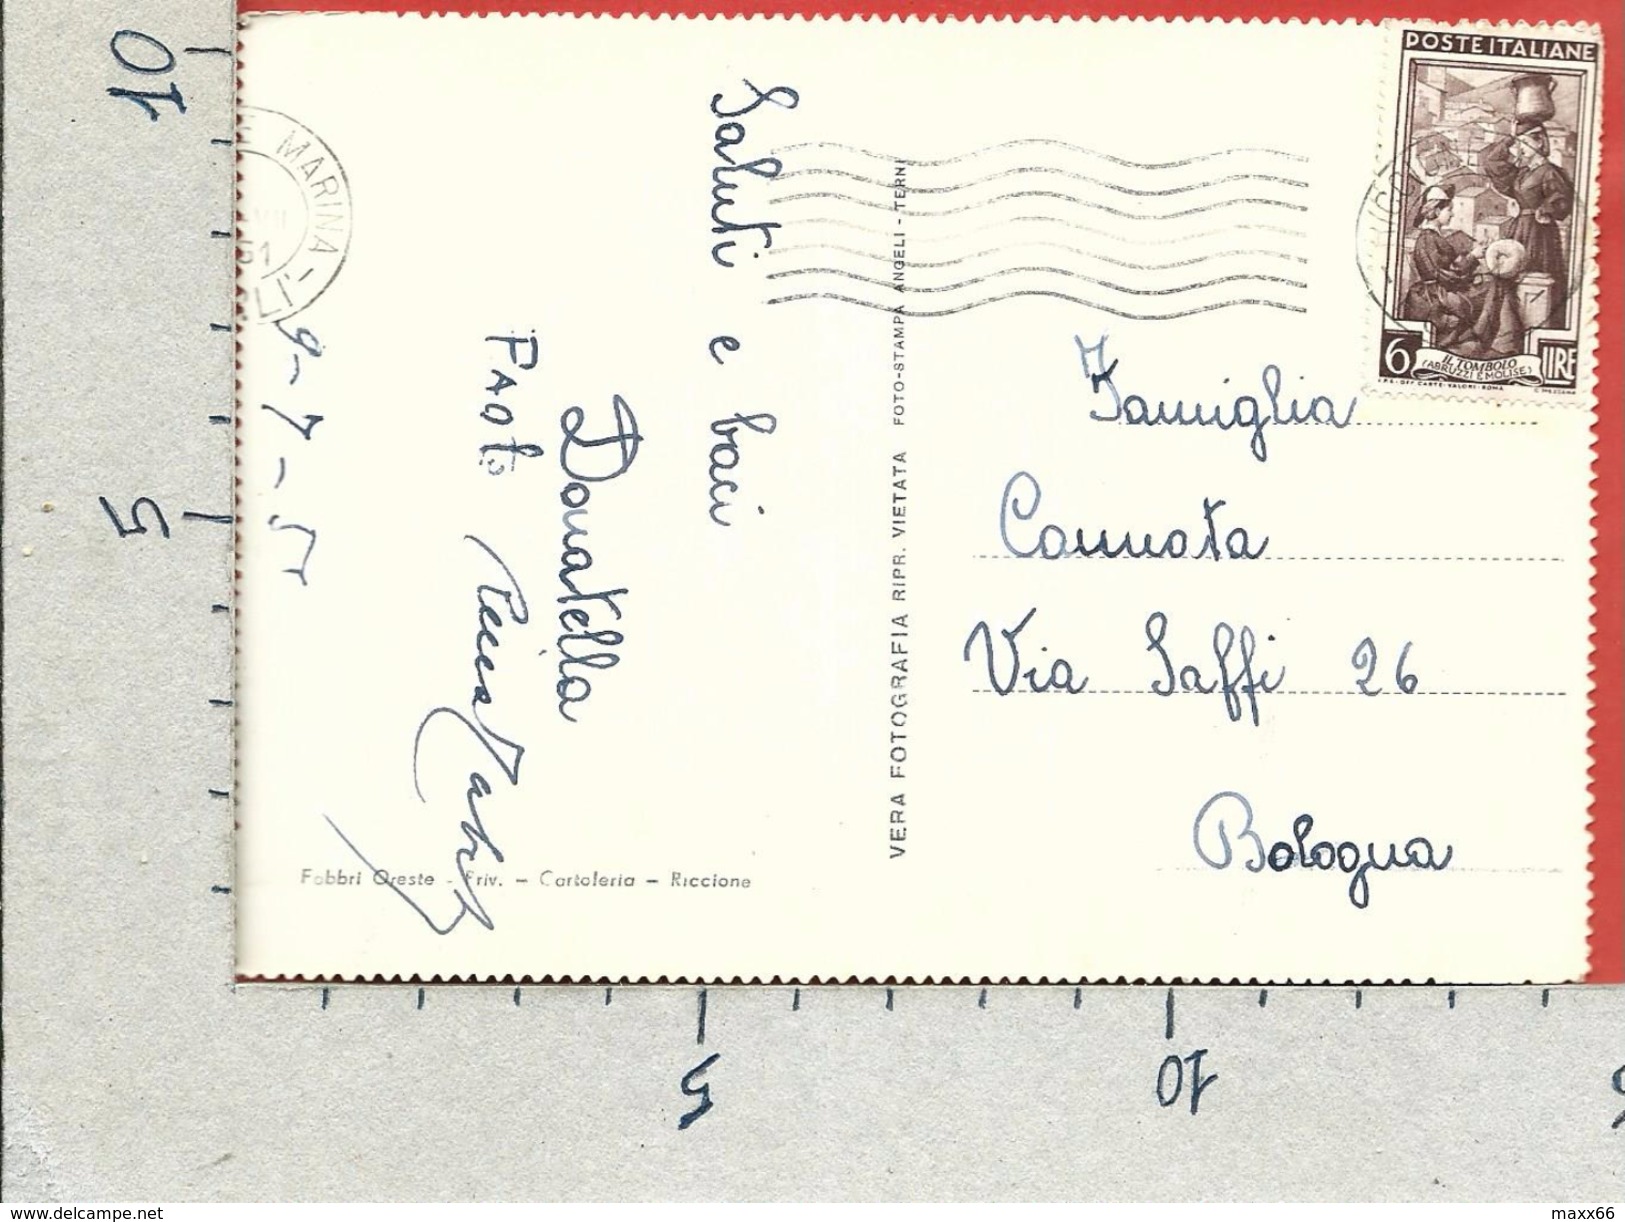 10
5
5
10
MARINA - LI
VII
51
9-7-51
Saluti e baci
Donatella
PAOLO
Fabbri Oreste - Priv. - Cartoleria - Riccione
VERA FOTOGRAFIA RIPR. VIETATA FOTO-STAMPA ANGELI - TERNI
POSTE ITALIANE
6 LIRE
IL TOMBOLO
(ABRUZZI E MOLISE)
I.P.S.-OFF. CARTE-VALORI-ROMA
Famiglia
Cannata
Via Saffi 26
Bologna
www.delcampe.net
maxx66